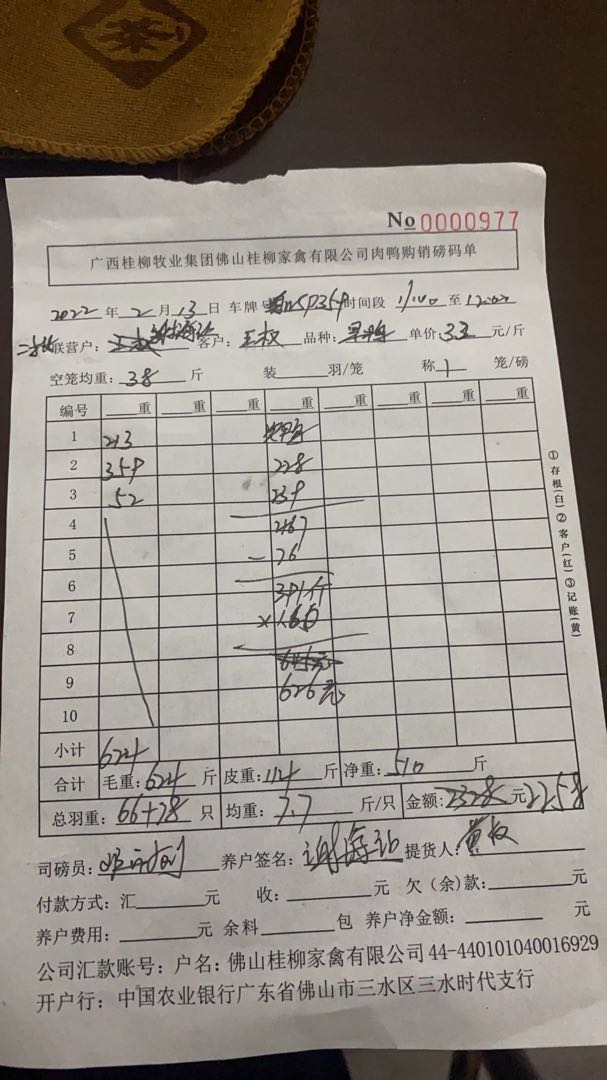 茶
No 0000977
广西桂柳牧业集团佛山桂柳家禽有限公司肉鸭购销磅码单
2022年2月13日 车牌号 时间段 11:00至12:00
联营户: 客户:王权 品种:单价:3.3元/斤
空笼均重:38斤 装 羽/笼 称1笼/磅
编号 重 重 重 重 重 重 重
1 213
2 359 228
3 52 239
4 467
5 -76
6 391斤
7 ×1.60
8
9 626元
10
小计 624
合计 毛重:624斤 皮重:114斤 净重:510斤
总羽重:66+78只 均重:7.7斤/只 金额:2328元2258
司磅员: 养户签名: 提货人:
付款方式:汇 元 收: 元 欠(余)款: 元
养户费用: 元 余料 包 养户净金额: 元
公司汇款账号:户名:佛山桂柳家禽有限公司44-440101040016929
开户行:中国农业银行广东省佛山市三水区三水时代支行
①存根(白)②客户(红)③记账(黄)